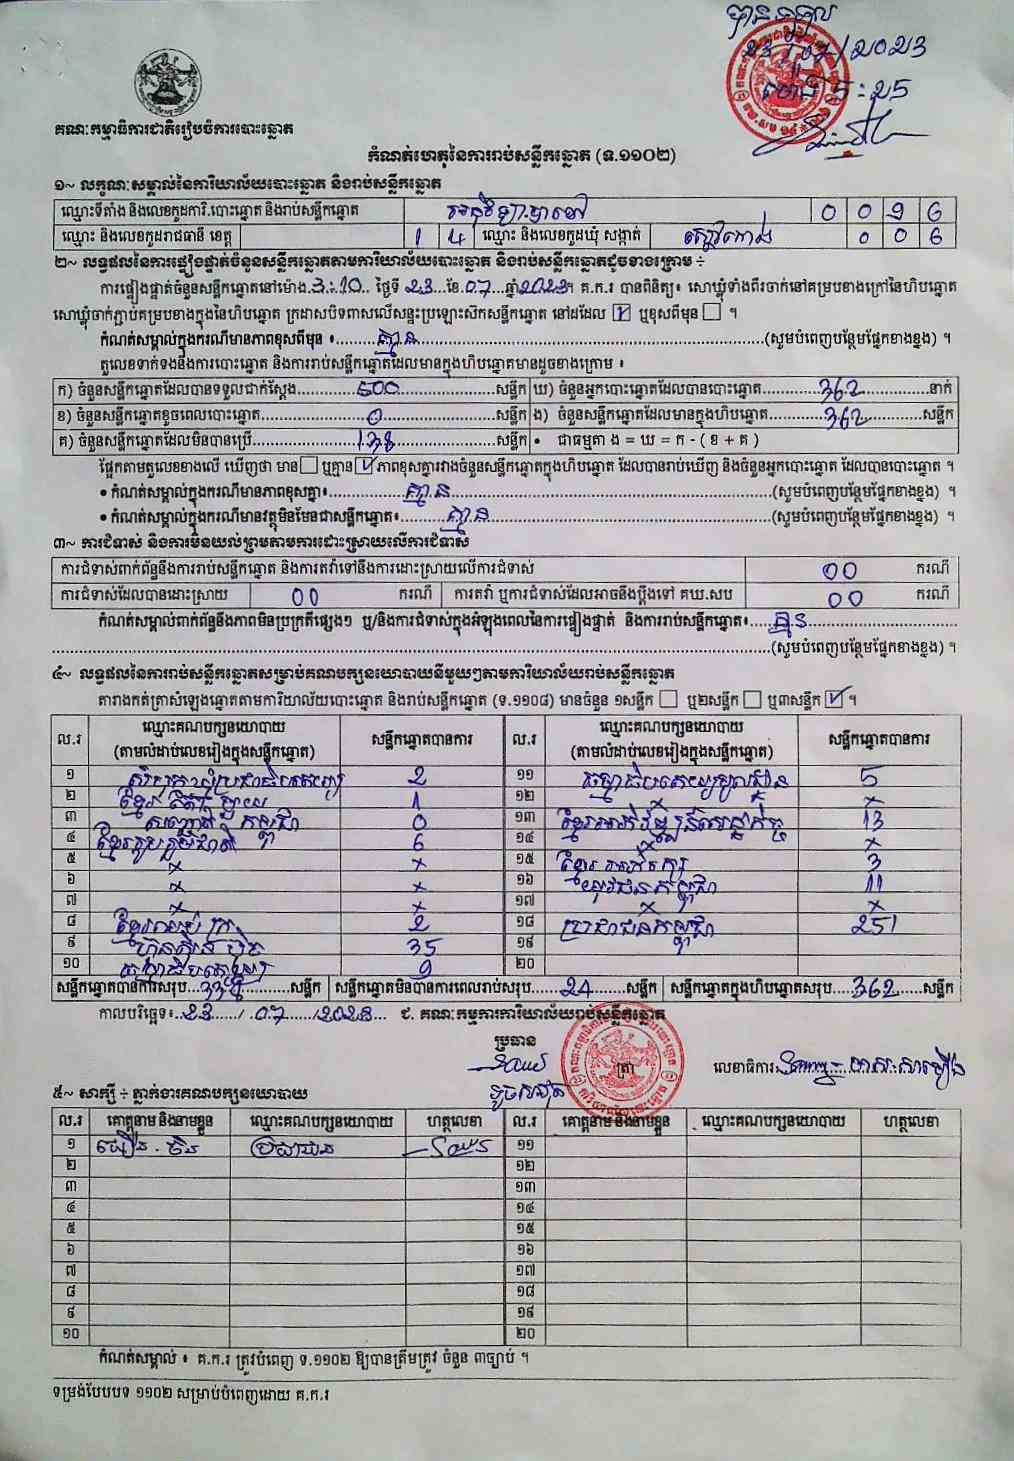 បានទទួល
23/07/2023
ម៉ោង 5:25
គណៈកម្មាធិការជាតិរៀបចំការបោះឆ្នោត
កំណត់ហេតុនៃការរាប់សន្លឹកឆ្នោត (ទ.១១០២)
១~ លក្ខណៈសម្គាល់នៃការិយាល័យបោះឆ្នោត និងរាប់សន្លឹកឆ្នោត
ឈ្មោះទីតាំង និងលេខកូដការិ.បោះឆ្នោត និងរាប់សន្លឹកឆ្នោត 0 0 9 6
ឈ្មោះ និងលេខកូដរាជធានី ខេត្ត 1 4 ឈ្មោះ និងលេខកូដឃុំ សង្កាត់ 0 0 6
២~ លទ្ធផលនៃការផ្ទៀងផ្ទាត់ចំនួនសន្លឹកឆ្នោតតាមការិយាល័យបោះឆ្នោត និងរាប់សន្លឹកឆ្នោតដូចខាងក្រោម ÷
ការផ្ទៀងផ្ទាត់ចំនួនសន្លឹកឆ្នោតនៅម៉ោង 3:10 ថ្ងៃទី 23 ខែ 07 ឆ្នាំ 2023 ។ គ.ក.រ បានពិនិត្យ៖ សោឃ្លុំទាំងពីរចាក់នៅគម្របខាងក្រៅនៃហិបឆ្នោត
សោឃ្លុំចាក់ភ្ជាប់គម្របខាងក្នុងនៃហិបឆ្នោត ក្រដាសបិទពាសលើសន្ទះប្រឡោះស៊កសន្លឹកឆ្នោត នៅដដែល ☑ ឬខុសពីមុន ☐ ។
កំណត់សម្គាល់ក្នុងករណីមានភាពខុសពីមុន ៖ គ្មាន (សូមបំពេញបន្ថែមផ្នែកខាងខ្នង) ។
តួលេខទាក់ទងនឹងការបោះឆ្នោត និងការរាប់សន្លឹកឆ្នោតដែលមានក្នុងហិបឆ្នោតមានដូចខាងក្រោម ៖
ក) ចំនួនសន្លឹកឆ្នោតដែលបានទទួលជាក់ស្តែង 500 សន្លឹក ឃ) ចំនួនអ្នកបោះឆ្នោតដែលបានបោះឆ្នោត 362 នាក់
ខ) ចំនួនសន្លឹកឆ្នោតខូចពេលបោះឆ្នោត 0 សន្លឹក ង) ចំនួនសន្លឹកឆ្នោតដែលមានក្នុងហិបឆ្នោត 362 សន្លឹក
គ) ចំនួនសន្លឹកឆ្នោតដែលមិនបានប្រើ 138 សន្លឹក • ជាធម្មតា ង = ឃ = ក - ( ខ + គ )
ផ្អែកតាមតួលេខខាងលើ ឃើញថា មាន ☐ ឬគ្មាន ☑ ភាពខុសគ្នារវាងចំនួនសន្លឹកឆ្នោតក្នុងហិបឆ្នោត ដែលបានរាប់ឃើញ និងចំនួនអ្នកបោះឆ្នោត ដែលបានបោះឆ្នោត ។
• កំណត់សម្គាល់ក្នុងករណីមានភាពខុសគ្នា៖ គ្មាន (សូមបំពេញបន្ថែមផ្នែកខាងខ្នង) ។
• កំណត់សម្គាល់ក្នុងករណីមានវត្ថុមិនមែនជាសន្លឹកឆ្នោត៖ គ្មាន (សូមបំពេញបន្ថែមផ្នែកខាងខ្នង) ។
៣~ ការជំទាស់ និងការមិនយល់ព្រមតាមការដោះស្រាយលើការជំទាស់
ការជំទាស់ពាក់ព័ន្ធនឹងការរាប់សន្លឹកឆ្នោត និងការតវ៉ាទៅនឹងការដោះស្រាយលើការជំទាស់ 00 ករណី
ការជំទាស់ដែលបានដោះស្រាយ 00 ករណី ការតវ៉ា ឬការជំទាស់ដែលអាចនឹងប្តឹងទៅ គឃ.សប 00 ករណី
កំណត់សម្គាល់ពាក់ព័ន្ធនឹងភាពមិនប្រក្រតីផ្សេងៗ ឬ/និងការជំទាស់ក្នុងអំឡុងពេលនៃការផ្ទៀងផ្ទាត់ និងការរាប់សន្លឹកឆ្នោត៖ គ្មាន
(សូមបំពេញបន្ថែមផ្នែកខាងខ្នង) ។
៤~ លទ្ធផលនៃការរាប់សន្លឹកឆ្នោតសម្រាប់គណបក្សនយោបាយនីមួយៗតាមការិយាល័យរាប់សន្លឹកឆ្នោត
តារាងកត់ត្រាសំឡេងឆ្នោតតាមការិយាល័យបោះឆ្នោត និងរាប់សន្លឹកឆ្នោត (ទ.១១០៨) មានចំនួន ១សន្លឹក ☐ ឬ២សន្លឹក ☐ ឬ៣សន្លឹក ☑ ។
ល.រ ឈ្មោះគណបក្សនយោបាយ (តាមលំដាប់លេខរៀងក្នុងសន្លឹកឆ្នោត) សន្លឹកឆ្នោតបានការ ល.រ ឈ្មោះគណបក្សនយោបាយ (តាមលំដាប់លេខរៀងក្នុងសន្លឹកឆ្នោត) សន្លឹកឆ្នោតបានការ
១ សំបុកឃ្មុំប្រជាធិបតេយ្យ 2 ១១ 5
២ ខ្មែរ 1 ១២ × ×
៣ កម្ពុជា 0 ១៣ ខ្មែរអភិវឌ្ឍន៍សេដ្ឋកិច្ច 13
៤ ខ្មែររួបរួមជាតិ 6 ១៤ × ×
៥ × × ១៥ ខ្មែរ អភិរក្ស 3
៦ × × ១៦ យុវជនកម្ពុជា 11
៧ × × ១៧ × ×
៨ ខ្មែរឈប់ក្រ 2 ១៨ ប្រជាជនកម្ពុជា 251
៩ ហ៊្វុនស៊ិនប៉ិច 35 ១៩
១០ 9 ២០
សន្លឹកឆ្នោតបានការសរុប 338 សន្លឹក សន្លឹកឆ្នោតមិនបានការពេលរាប់សរុប 24 សន្លឹក សន្លឹកឆ្នោតក្នុងហិបឆ្នោតសរុប 362 សន្លឹក
កាលបរិច្ឆេទ៖ 23 / 07 / 2023 ជ. គណៈកម្មការការិយាល័យរាប់សន្លឹកឆ្នោត
ប្រធាន
ត្រា
លេខាធិការ
៥~ សាក្សី ÷ ភ្នាក់ងារគណបក្សនយោបាយ
ល.រ គោត្តនាម និងនាមខ្លួន ឈ្មោះគណបក្សនយោបាយ ហត្ថលេខា ល.រ គោត្តនាម និងនាមខ្លួន ឈ្មោះគណបក្សនយោបាយ ហត្ថលេខា
១ ប្រជាជន ១១
២ ១២
៣ ១៣
៤ ១៤
៥ ១៥
៦ ១៦
៧ ១៧
៨ ១៨
៩ ១៩
១០ ២០
កំណត់សម្គាល់ ៖ គ.ក.រ ត្រូវបំពេញ ទ.១១០២ ឱ្យបានត្រឹមត្រូវ ចំនួន ៣ច្បាប់ ។
ទម្រង់បែបបទ ១១០២ សម្រាប់បំពេញដោយ គ.ក.រ